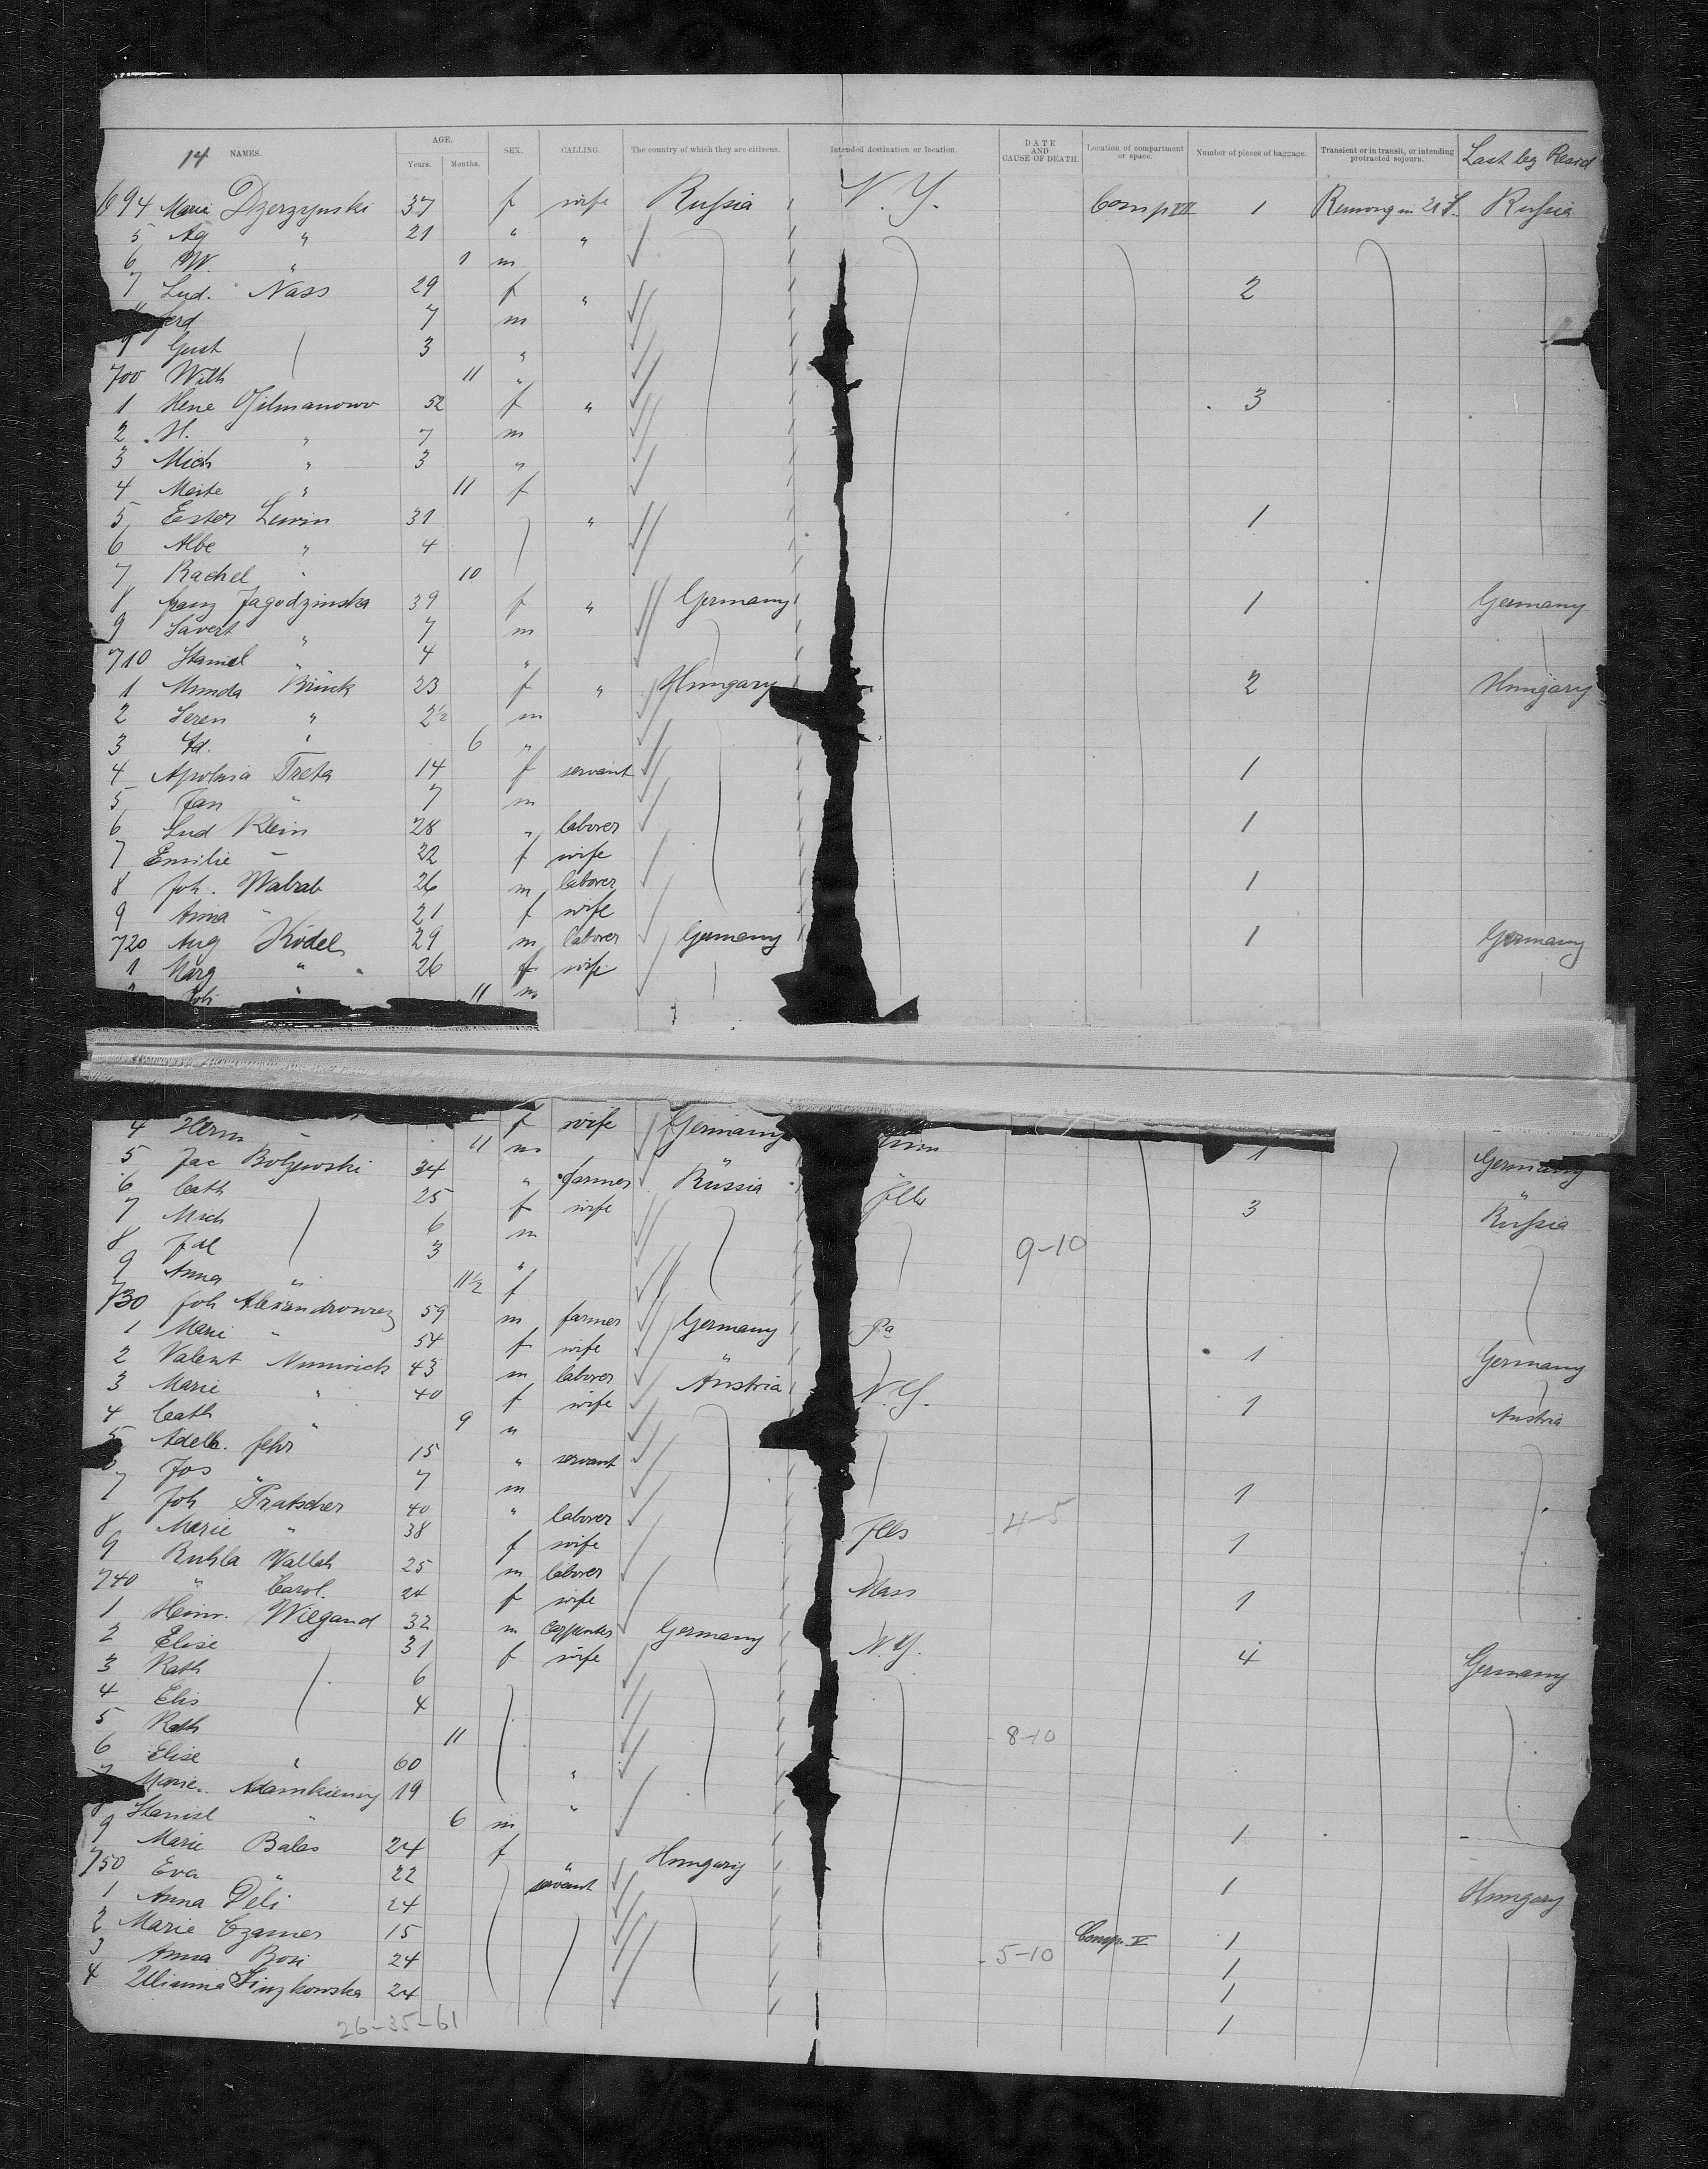 14 NAMES. AGE. Years. Months. SEX. CALLING. The country of which they are citizens. Intended destination or location. DATE AND CAUSE OF DEATH. Location of compartment or space. Number of pieces of baggage. Transient or in transit, or intending protracted sojourn. Last leg Resid
694 Marie Dzerzynski 37 f wife Russia N.Y. Comp VII 1 Remong in U.S. Russia
5 Ag " 21 " "
6 W. " 1 m
7 Lud. Nass 29 f " 2
ferd 7 m
9 Gust 3 "
700 Wilh 11 "
1 Hene 52 f " 3
2 H. " 7 m
3 Mich " 3 "
4 Meite " 11 f
5 Ester Lewin 31 " 1
6 Albe " 4
7 Rachel " 10
8 Franz Jagodzinska 39 f " Germany 1 Germany
9 Savert " 7 m
710 Stanisl " 4 "
1 Munda Brinck 23 f " Hungary 2 Hungary
2 Seren " 2 1/2 m
3 Ad. " 6 "
4 Apolonia Treta 14 f servant 1
5 Jan " 7 m
6 Lud Klein 28 " laborer 1
7 Emilie " 22 f wife
8 Joh. Wabab 26 m laborer 1
9 Anna " 21 f wife
720 Aug Ködel 29 m laborer Germany 1 Germany
1 Marg " 26 f wife
Joh " 11 m
f wife Germany
4 Herm 11 m 1 Germany
5 Jac Bolzewski 34 " farmer Russia Ills
6 Cath 25 f wife 3 Russia
7 Mich 6 m
8 Jul 3 " 9-10
9 Anna " 11 1/2 f
730 Joh Alexandrowicz 59 m farmer Germany Pa
1 Marie " 54 f wife " 1 Germany
2 Valent Nunwick 43 m laborer Austria N.Y.
3 Marie " 40 f wife 1 Austria
4 Cath " 9 "
5 Adelh. Fehr 15 " servant
Jos " 7 m 1
7 Joh Pratscher 40 " laborer Ills 4-5
8 Marie " 38 f wife 1
9 Ruhla Vallah 25 m laborer Mass
740 " Carol 24 f wife 1
1 Heinr. Wiegand 32 m carpenter Germany N.Y.
2 Elise 31 f wife 4 Germany
3 Kath 6
4 Elis 4
5 Kath 11 8-10
6 Elise " 60 "
Marie. 19 "
Stanisl " 6 m 1
9 Marie Balas 24 f " Hungary
750 Eva " 22 servant 1 Hungary
1 Anna Deli 24
2 Marie Czamer 15 Comp. V 1
3 Anna Bosi 24 5-10 1
4 24 1
26-35-61 1